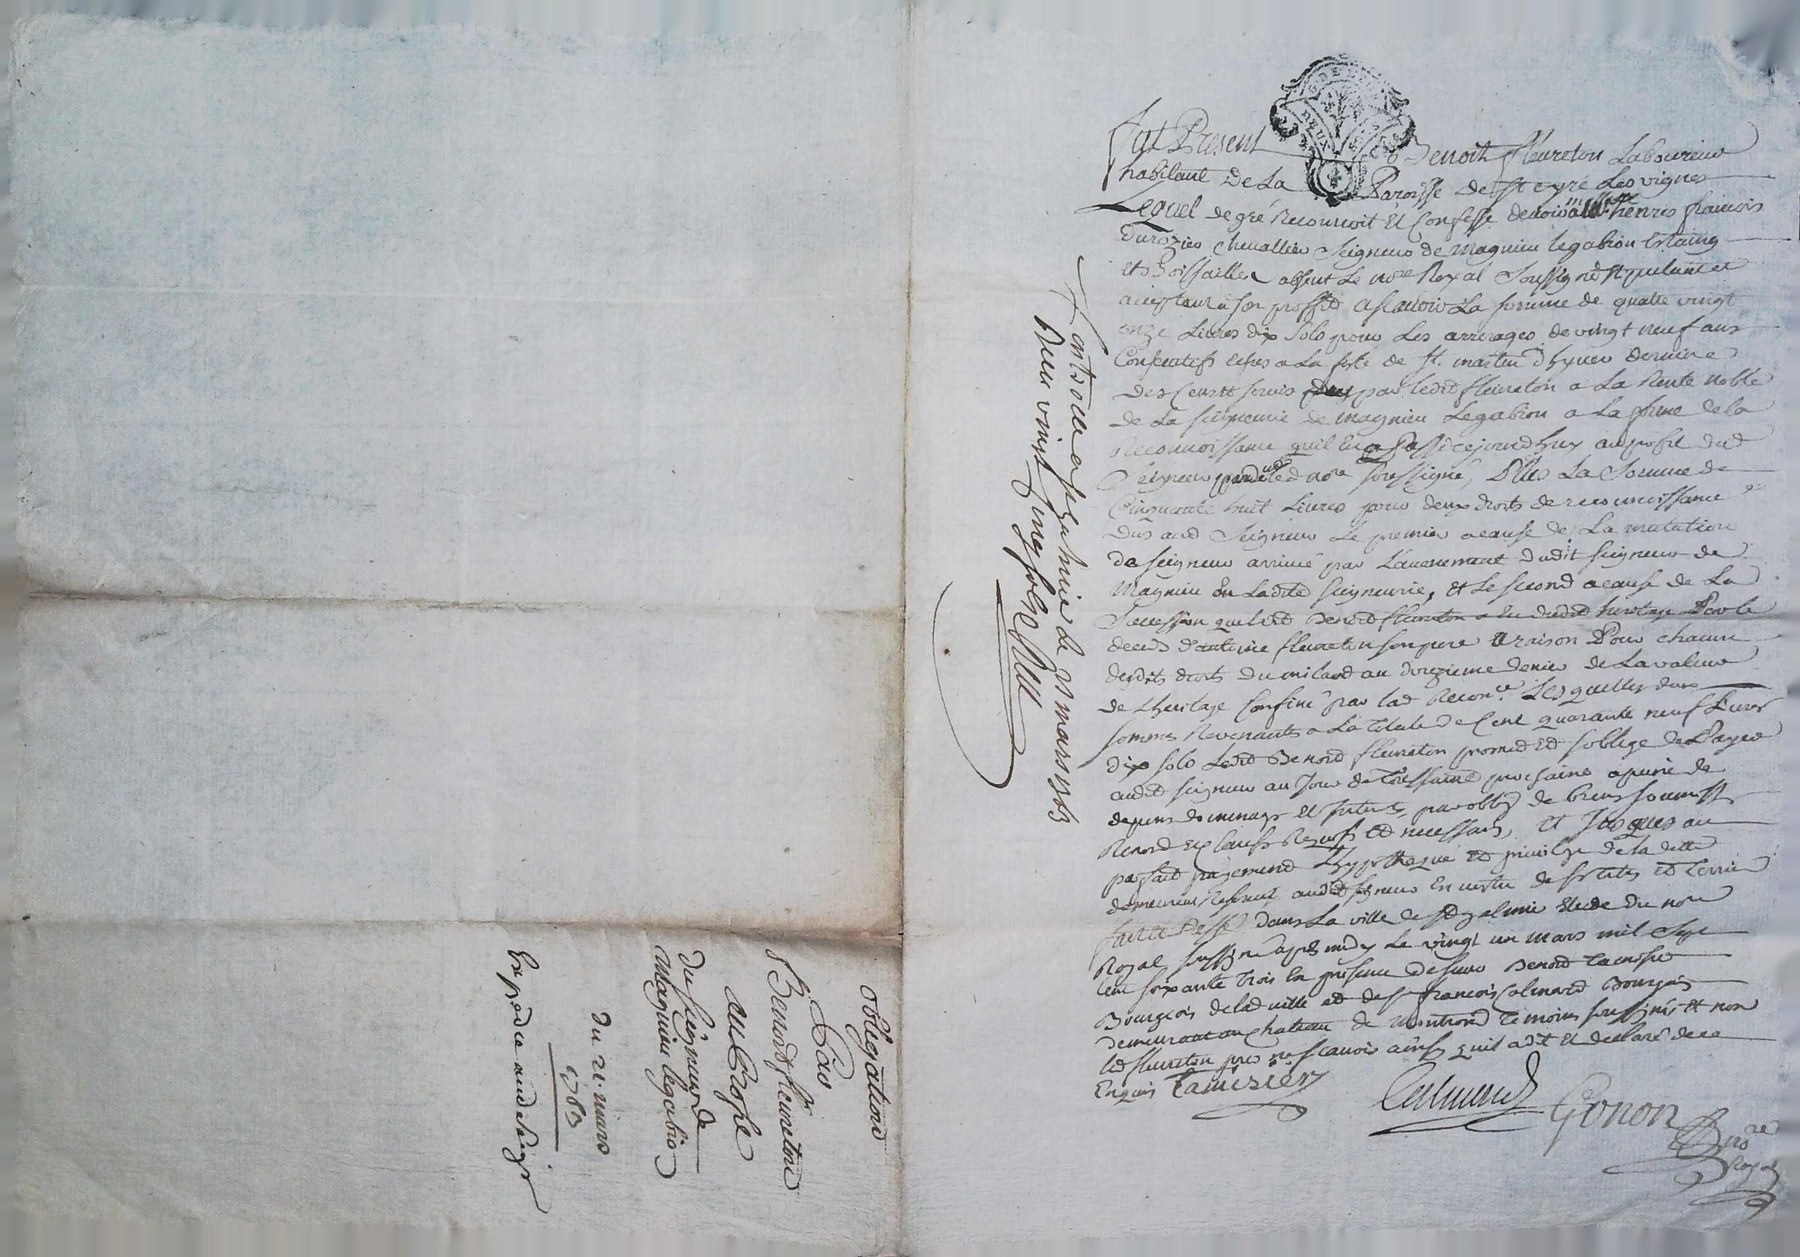 fut Present Benoit fleureton Laboureur
habitant de La Paroisse de St cyre Les vignes
Lequel de gré Reconnoit Et Confesse devoir a henris francois
Durozier chevallier Seigneur de magnieu legabion
absent Le nore Royal Soussigné stipulant et
acceptant a son proffit ascavoir La somme de quatre vingt
onze Livres dix Sols pour Les arrerages de vingt neuf ans
Consecutifs echus a La feste de St. martin d'hyver derniere
Des Cens et servis par ledit fleureton a La Rente noble
de La seigneurie de magnieu Legabion a La forme de la
Reconnoissance quil En a Passé cejourdhuy au profit dud
Seigneur pardevant led nore soussigné, Plus La Somme de
Cinquante huit Livres pour deux droits de reconnoissance
Dus aud Seigneur Le premier acause de La mutation
de seigneur arrivée par L'avenement dudit seigneur de
Magnieu En Ladite seigneurie, et Le second acause de La
Succession que ledit Benoit fleureton a Eu dudit heritage Par le
deceds d'antoine fleureton son pere a raison Pour chacun
desdits droits du milard au douzieme denier de La valeur
de L'heritage Confiné par lad Reconce Lesquelles deux
sommes Revenants a La totale de Cent quarante neuf Livres
dix sols Ledit Benoit fleureton promet Et soblige de Payer
audit seigneur au Jour de Toussaint prochaine a peine de
depens dommages Et Interets, par oblig de biens soumiss
Renond Et clauses Requises Et necessaires, et Jusques au
parfait payement L'hypotheque Et privilege de la dette
demeurent Reservés audit seigneur En vertu de ses titres Et terrier
fait et Passé dans La ville de St galmier Etude du nore
Royal soussigné apres midy Le vingt un mars mil Sept
Cent soixante trois En presence de sieur Benoit Tamisier
Bourgeois de lad ville et de sr francois Calmard Bourgois
demeurant au Chateau de Montrond temoins soussignés et non
led fleureton pour ne scavoir ainsy quil a dit et declaré de ce
Enquis Tamisier
Calmard Gonon
nore
Royal
Controllé a st galmier Le 21 mars 1763
Recu vingt sols
obligation
Pas
sr Benoit fleureton
au Profit
du seigneur de
Magnieu legabion
du 21. mars
1763
Expedée aud seigr